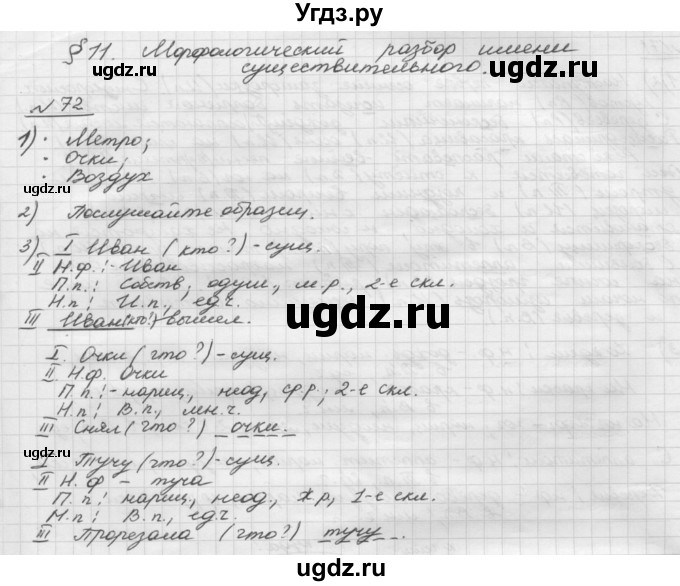 Угдз.ру
§ 11. Морфологический разбор имени
существительного.
ugdz.ru
ugdz.ru
№ 72
1) · Метро;
· Очки;
· Воздух
ugdz.ru
ugdz.ru
2) Послушайте образец.
3) I Иван (кто?) - сущ.
II Н.ф.: - Иван
П.п.: Собств, одуш., м.р., 2-е скл.
Н.п: И.п., ед.ч.
III Иван (кто?) вышел.
ugdz.ru
ugdz.ru
I. Очки (что?) - сущ.
II Н.ф. Очки
П.п: - нариц., неод, ср.р; 2-е скл.
Н.п: В.п, мн.ч.
III Снял (что?) очки.
ugdz.ru
I Тучу (что?) - сущ.
II Н.ф - туча
П.п: нариц, неод., ж.р, 1-е скл.
Н.п: В.п., ед.ч.
III Прорезала (что?) тучу.
ugdz.ru
ugdz.ru